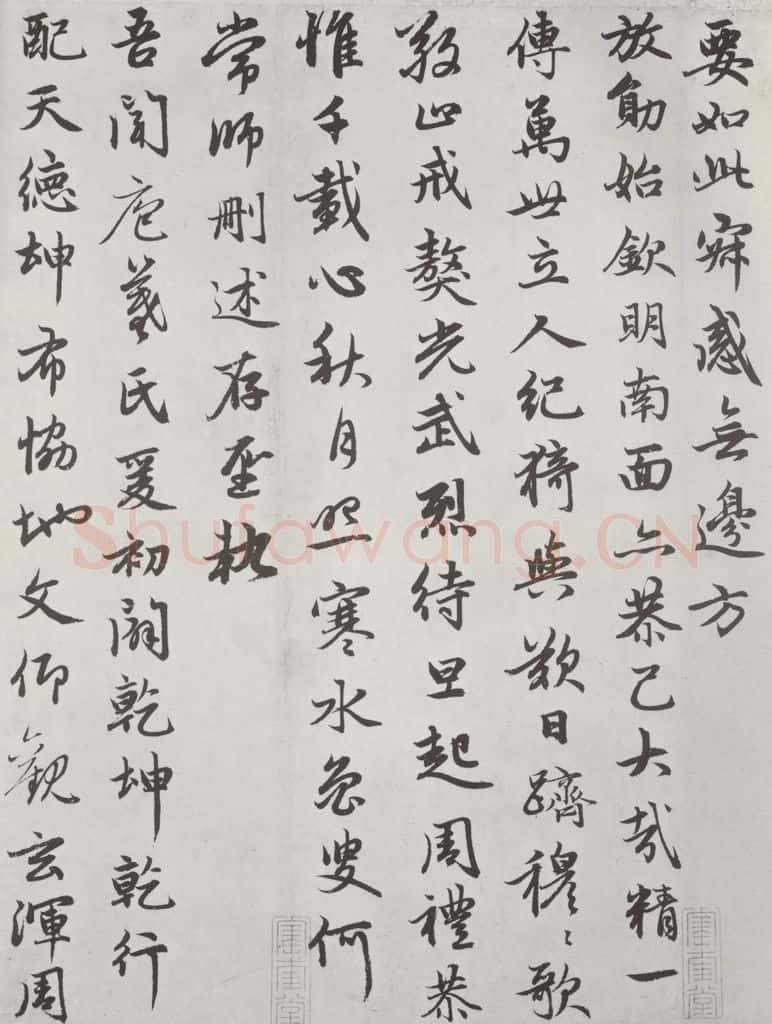 要如此寂感無邊方
放勛始欽明南面亦恭己大哉精一
傳萬世立人紀猗與歎日躋穆〻歌
敬止戒獒光武烈待旦起周禮恭
惟千載心秋月照寒水魯叟何
常師刪述存聖軌
吾聞庖羲氏爰初闢乾坤乾行
配天德坤布協地文仰觀玄渾周
Shufawang.CN